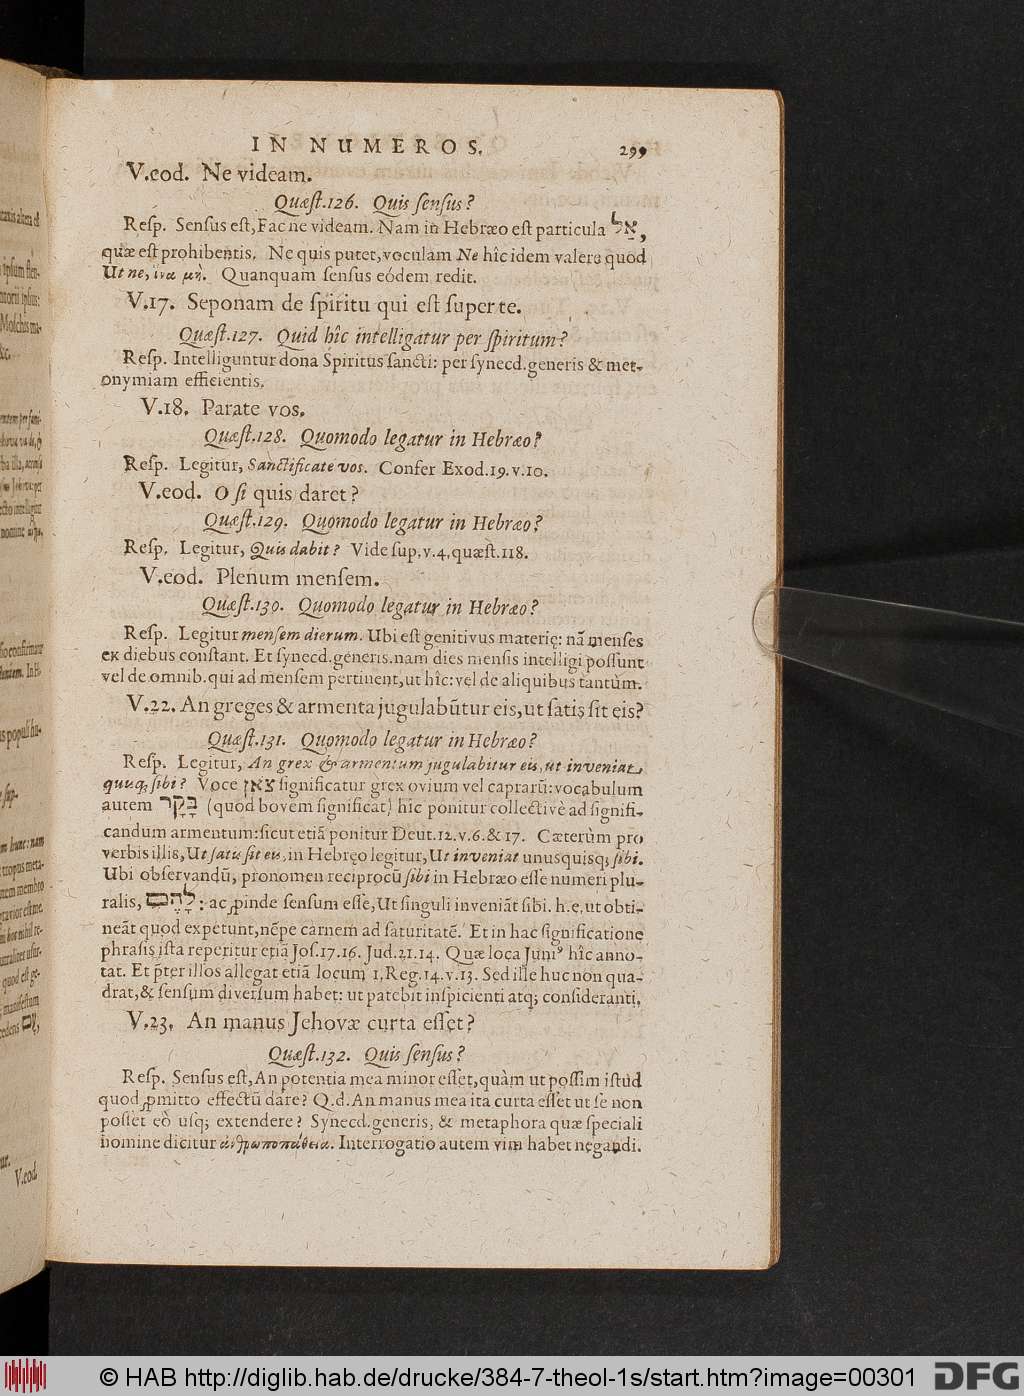 IN NUMEROS. 299
V.eod. Ne videam.
Quæſt.126. Quis ſenſus?
Reſp. Senſus eſt, Fac ne videam. Nam in Hebræo eſt particula אַל,
quæ eſt prohibentis. Ne quis putet, voculam Ne hîc idem valere quod
Ut ne, ἵνα μή. Quanquam ſenſus eòdem redit.
V.17. Seponam de ſpiritu qui eſt ſuper te.
Quæſt.127. Quid hîc intelligatur per ſpiritum?
Reſp. Intelliguntur dona Spiritus ſancti: per ſynecd.generis & met-
onymiam efficientis.
V.18. Parate vos.
Quæſt.128. Quomodo legatur in Hebræo?
Reſp. Legitur, Sanctificate vos. Confer Exod.19.v.10.
V.eod. O ſi quis daret?
Quæſt.129. Quomodo legatur in Hebræo?
Reſp. Legitur, Quis dabit? Vide ſup.v.4.quæſt.118.
V.eod. Plenum menſem.
Quæſt.130. Quomodo legatur in Hebræo?
Reſp. Legitur menſem dierum. Ubi eſt genitivus materię: nã menſes
ex diebus conſtant. Et ſynecd.generis.nam dies menſis intelligi poſſunt
vel de omnib.qui ad menſem pertinent, ut hîc: vel de aliquibus tantùm.
V.22. An greges & armenta jugulabũtur eis, ut ſatis ſit eis?
Quæſt.131. Quomodo legatur in Hebræo?
Reſp. Legitur, An grex & armentum jugulabitur eis, ut inveniat
quiſq; ſibi? Voce צאן ſignificatur grex ovium vel caprarũ: vocabulum
autem בָּקָר (quod bovem ſignificat) hîc ponitur collectivè ad ſignifi-
candum armentum: ſicut etiã ponitur Deut.12.v.6.& 17. Cæterùm pro
verbis illis, Ut ſatis ſit eis, in Hebręo legitur, Ut inveniat unusquisq; ſibi.
Ubi obſervandũ, pronomen reciprocũ ſibi in Hebræo eſſe numeri plu-
ralis, לָהֶם: ac ꝓinde ſenſum eſſe, Ut ſinguli inveniãt ſibi. h.e, ut obti-
neãt quod expetunt, nẽpe carnem ad ſaturitatẽ. Et in hac ſignificatione
phraſis iſta reperitur etiã Joſ.17.16. Jud.21.14. Quæ loca Juniꝰ hîc anno-
tat. Et p̃ter illos allegat etiã locum 1.Reg.14.v.13. Sed ille huc non qua-
drat, & ſenſum diverſum habet: ut patebit inſpicienti atq; conſideranti.
V.23. An manus Jehovæ curta eſſet?
Quæſt.132. Quis ſenſus?
Reſp. Senſus eſt, An potentia mea minor eſſet, quàm ut poſſim iſtud
quod ꝓmitto effectũ dare? Q.d. An manus mea ita curta eſſet ut ſe non
poſſet eò uſq; extendere? Synecd.generis, & metaphora quæ ſpeciali
nomine dicitur ἀνθρωποπάθεια. Interrogatio autem vim habet negandi.
© HAB http://diglib.hab.de/drucke/384-7-theol-1s/start.htm?image=00301
DFG